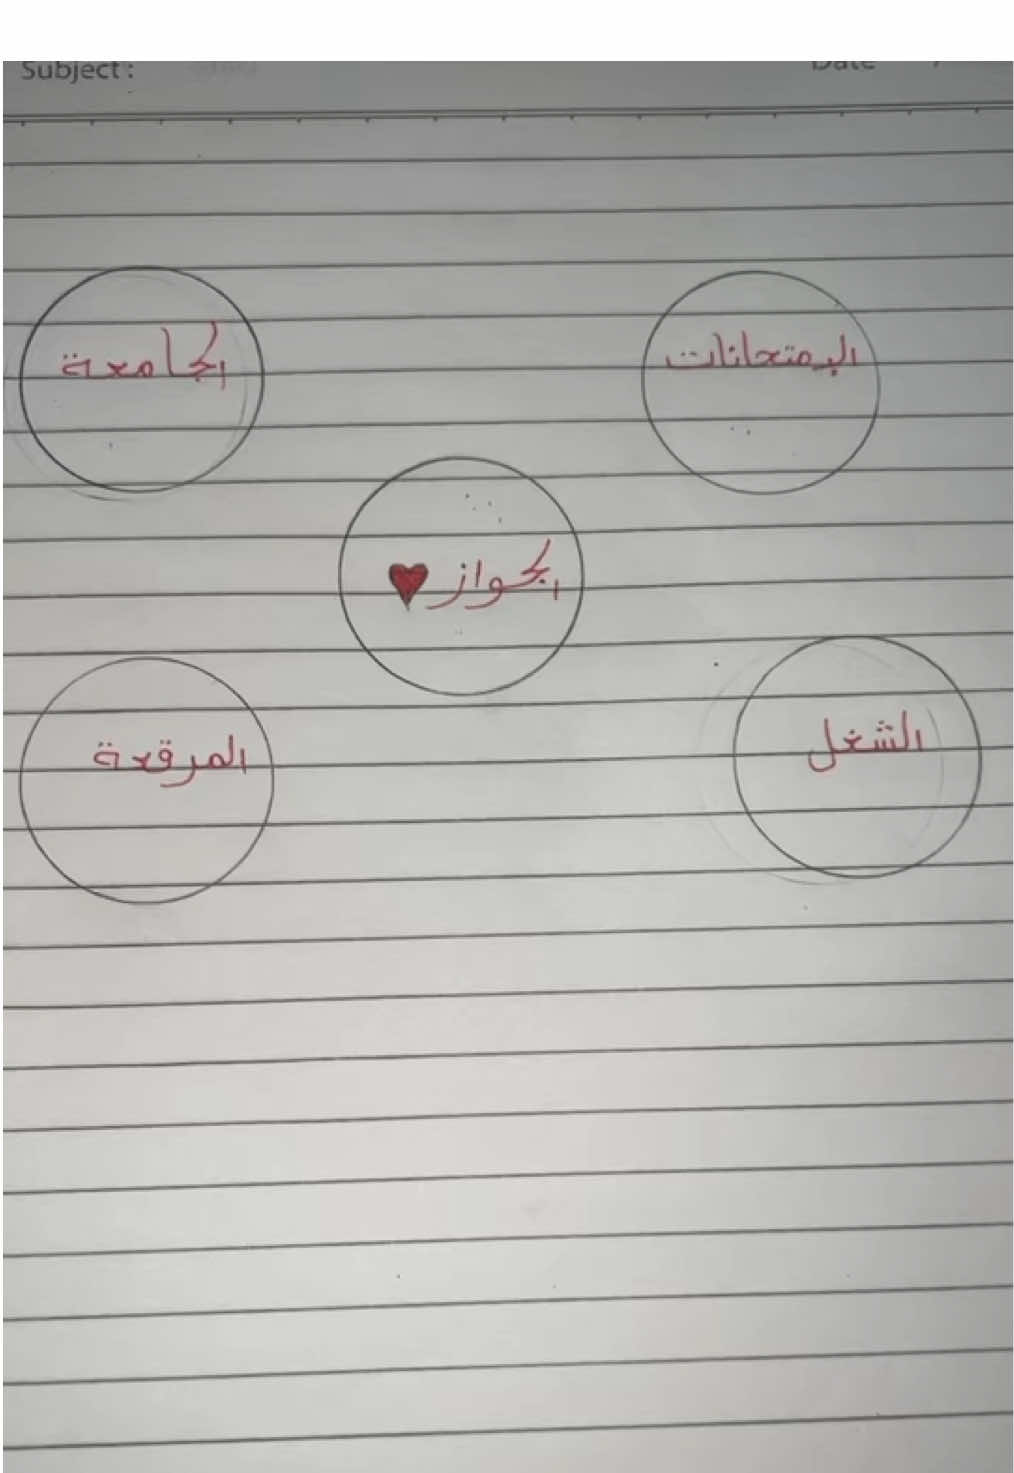 Subject :
Date
البمتحانات
الجامعة
الجواز
الشغل
المرقعة